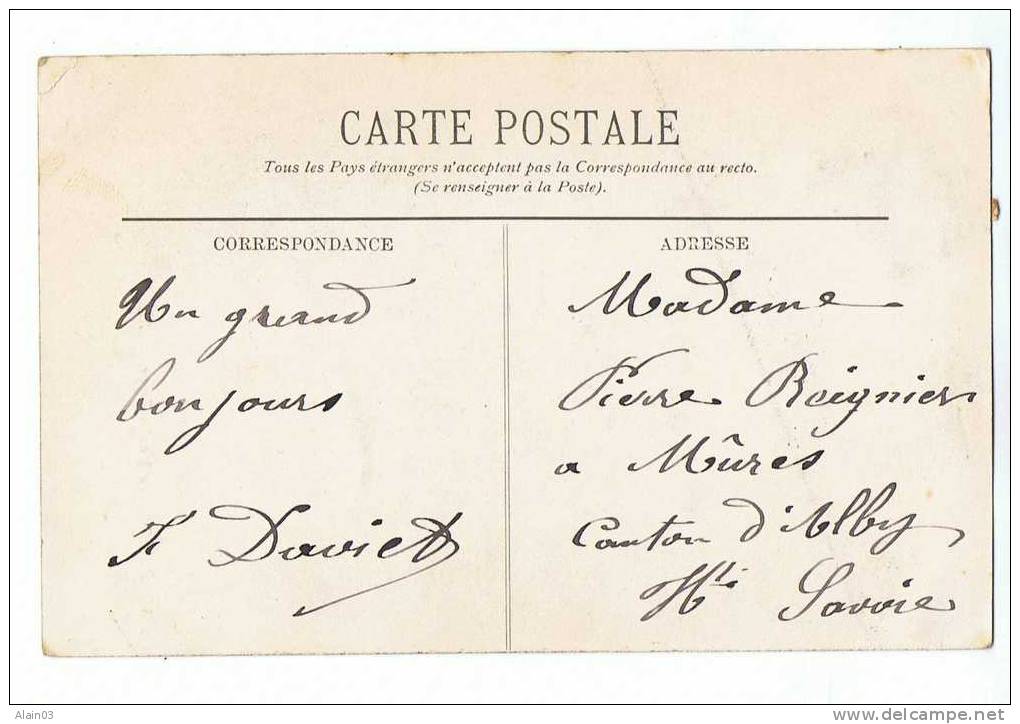 CARTE POSTALE
Tous les Pays étrangers n'acceptent pas la Correspondance au recto.
(Se renseigner à la Poste).
CORRESPONDANCE
Un grand
bonjours
F Daviet
ADRESSE
Madame
Pierre Reignier
a Mûres
Canton d'Alby
Hte Savoie
Alain03
delcampe.net